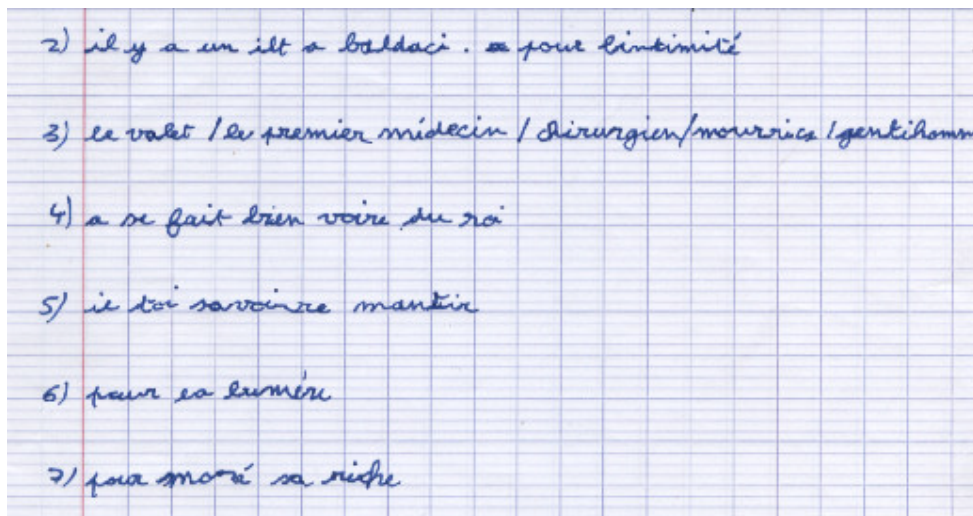 2) il y a un ilt a baldaci. pour lintimité
3) le valet / le premier médecin / chirurgien/nourrice / gentihomm
4) a se fait bien voire du roi
5) il doi savoirre mantir
6) pour la lumére
7) pour moré sa riche